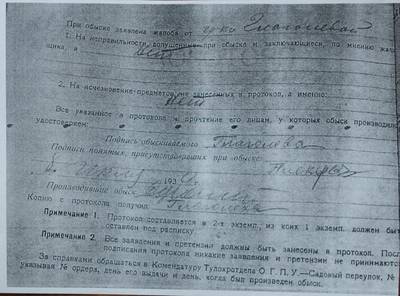 При обыске заявлена жалоба от гр-ки Глаголевой
1. На неправильности, допущенные при обыске и заключающиеся, по мнению жалоб-
щика, в нет
2. На исчезновение предметов не занесенных в протокол, а именно:
Нет
Все указанное в протоколе и прочтение его лицам, у которых обыск производился
удостоверяем:
Подпись обыскиваемого Глаголева
Подписи понятых, присутствовавших при обыске:
193
Производивший обыск
Копию с протокола получил Глаголева
Примечание 1. Протокол составляется в 2-х экземп, из коих 1 экземп. должен быть
оставлен под расписку
Примечание 2. Все заявления и претензии должны быть занесены в протокол. После
подписания протокола никакие заявления и претензии не принимаются
За справками обращаться в Комендатуру Тулокротдела О. Г. П. У.—Садовый переулок, №
указывая № ордера, день его выдачи и день, когда был произведен обыск.